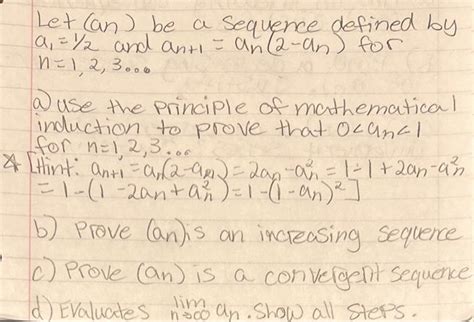 Let (an) be a sequence defined by
a₁=½ and an+1 = an(2-an) for
n=1,2,3...
a) use the principle of mathematical
induction to prove that 0<an<1
for n=1,2,3...
* [Hint: an+1=an(2-an)=2an-an²=1-1+2an-an²
=1-(1-2an+an²)=1-(1-an)²]
b) Prove (an) is an increasing sequence
c) Prove (an) is a convergent sequence
d) Evaluates lim n→∞ an. Show all steps.